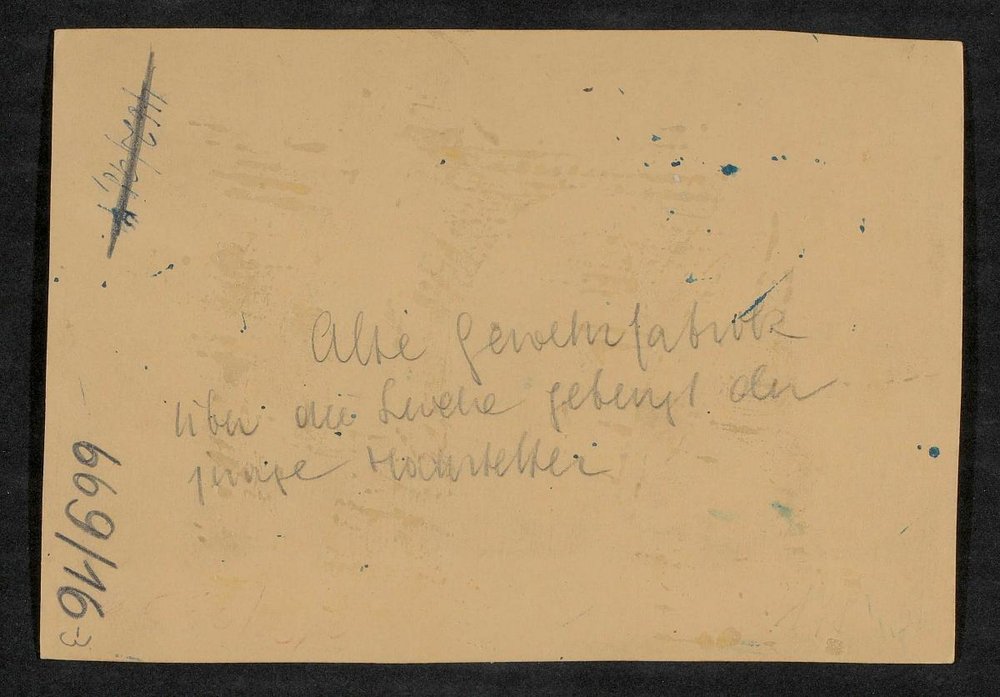 Alte Gewehrfabrik
über die Leiche gebeugt der
junge Hochstetter
669/16-3